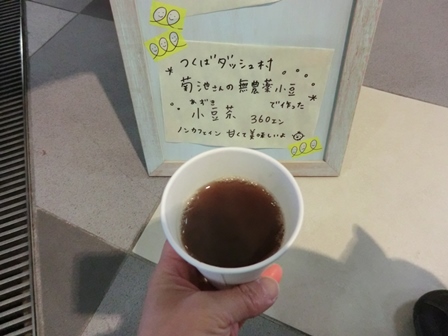 つくばダッシュ村
*菊池さんの無農薬小豆
あずき
小豆茶 で作った*
360エン
ノンカフェイン 甘くて美味しいよ